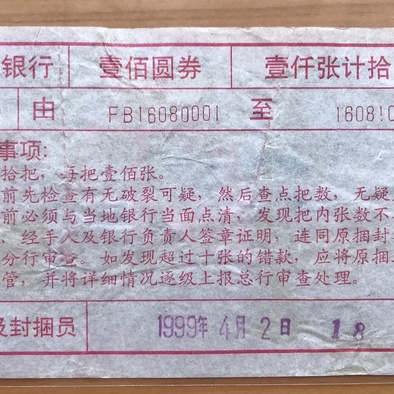 银行 壹佰圆券 壹仟张计拾
由 FB16080001 至 160810
事项:
拾把，每把壹佰张。
前先检查有无破裂可疑，然后查点把数，无疑
前必须与当地银行当面点清，发现把内张数不
、经手人及银行负责人签章证明，连同原捆封
分行审查。如发现超过十张的错款，应将原捆
管，并将详细情况逐级上报总行审查处理。
及封捆员 1999年4月2日 18